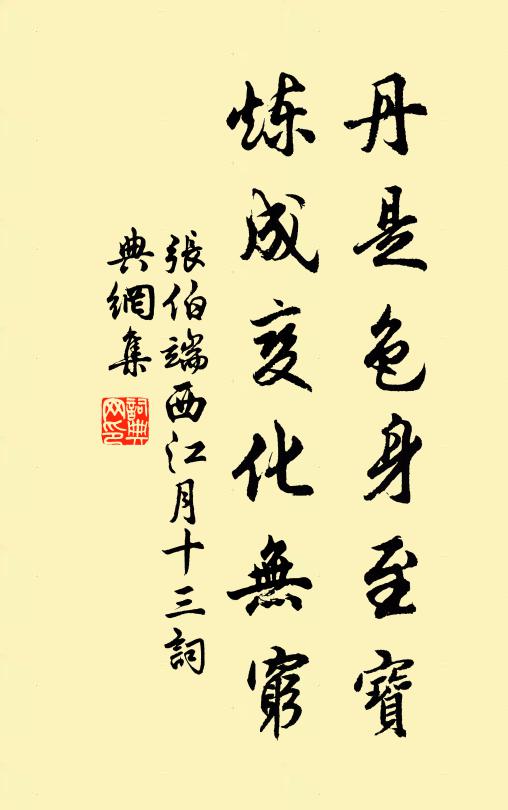 丹是色身至寶
煉成變化無窮
張伯端西江月十三詞
典網集
詞典網印